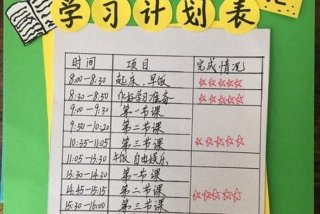 学习计划表
时间 项目 完成情况
8:00-8:30 起床、早饭 ☆☆☆☆☆
8:30-8:50 作好学习准备 ☆☆☆☆☆
9:00-9:30 第一节课
9:50-10:20 第二节课
10:35-11:05 第三节课 ☆☆☆☆☆
11:05-13:30 午饭 自由娱乐
13:30-14:30 第一节课
14:45-15:15 第二节课 ☆☆☆☆☆
15:30-16:00 第三节课